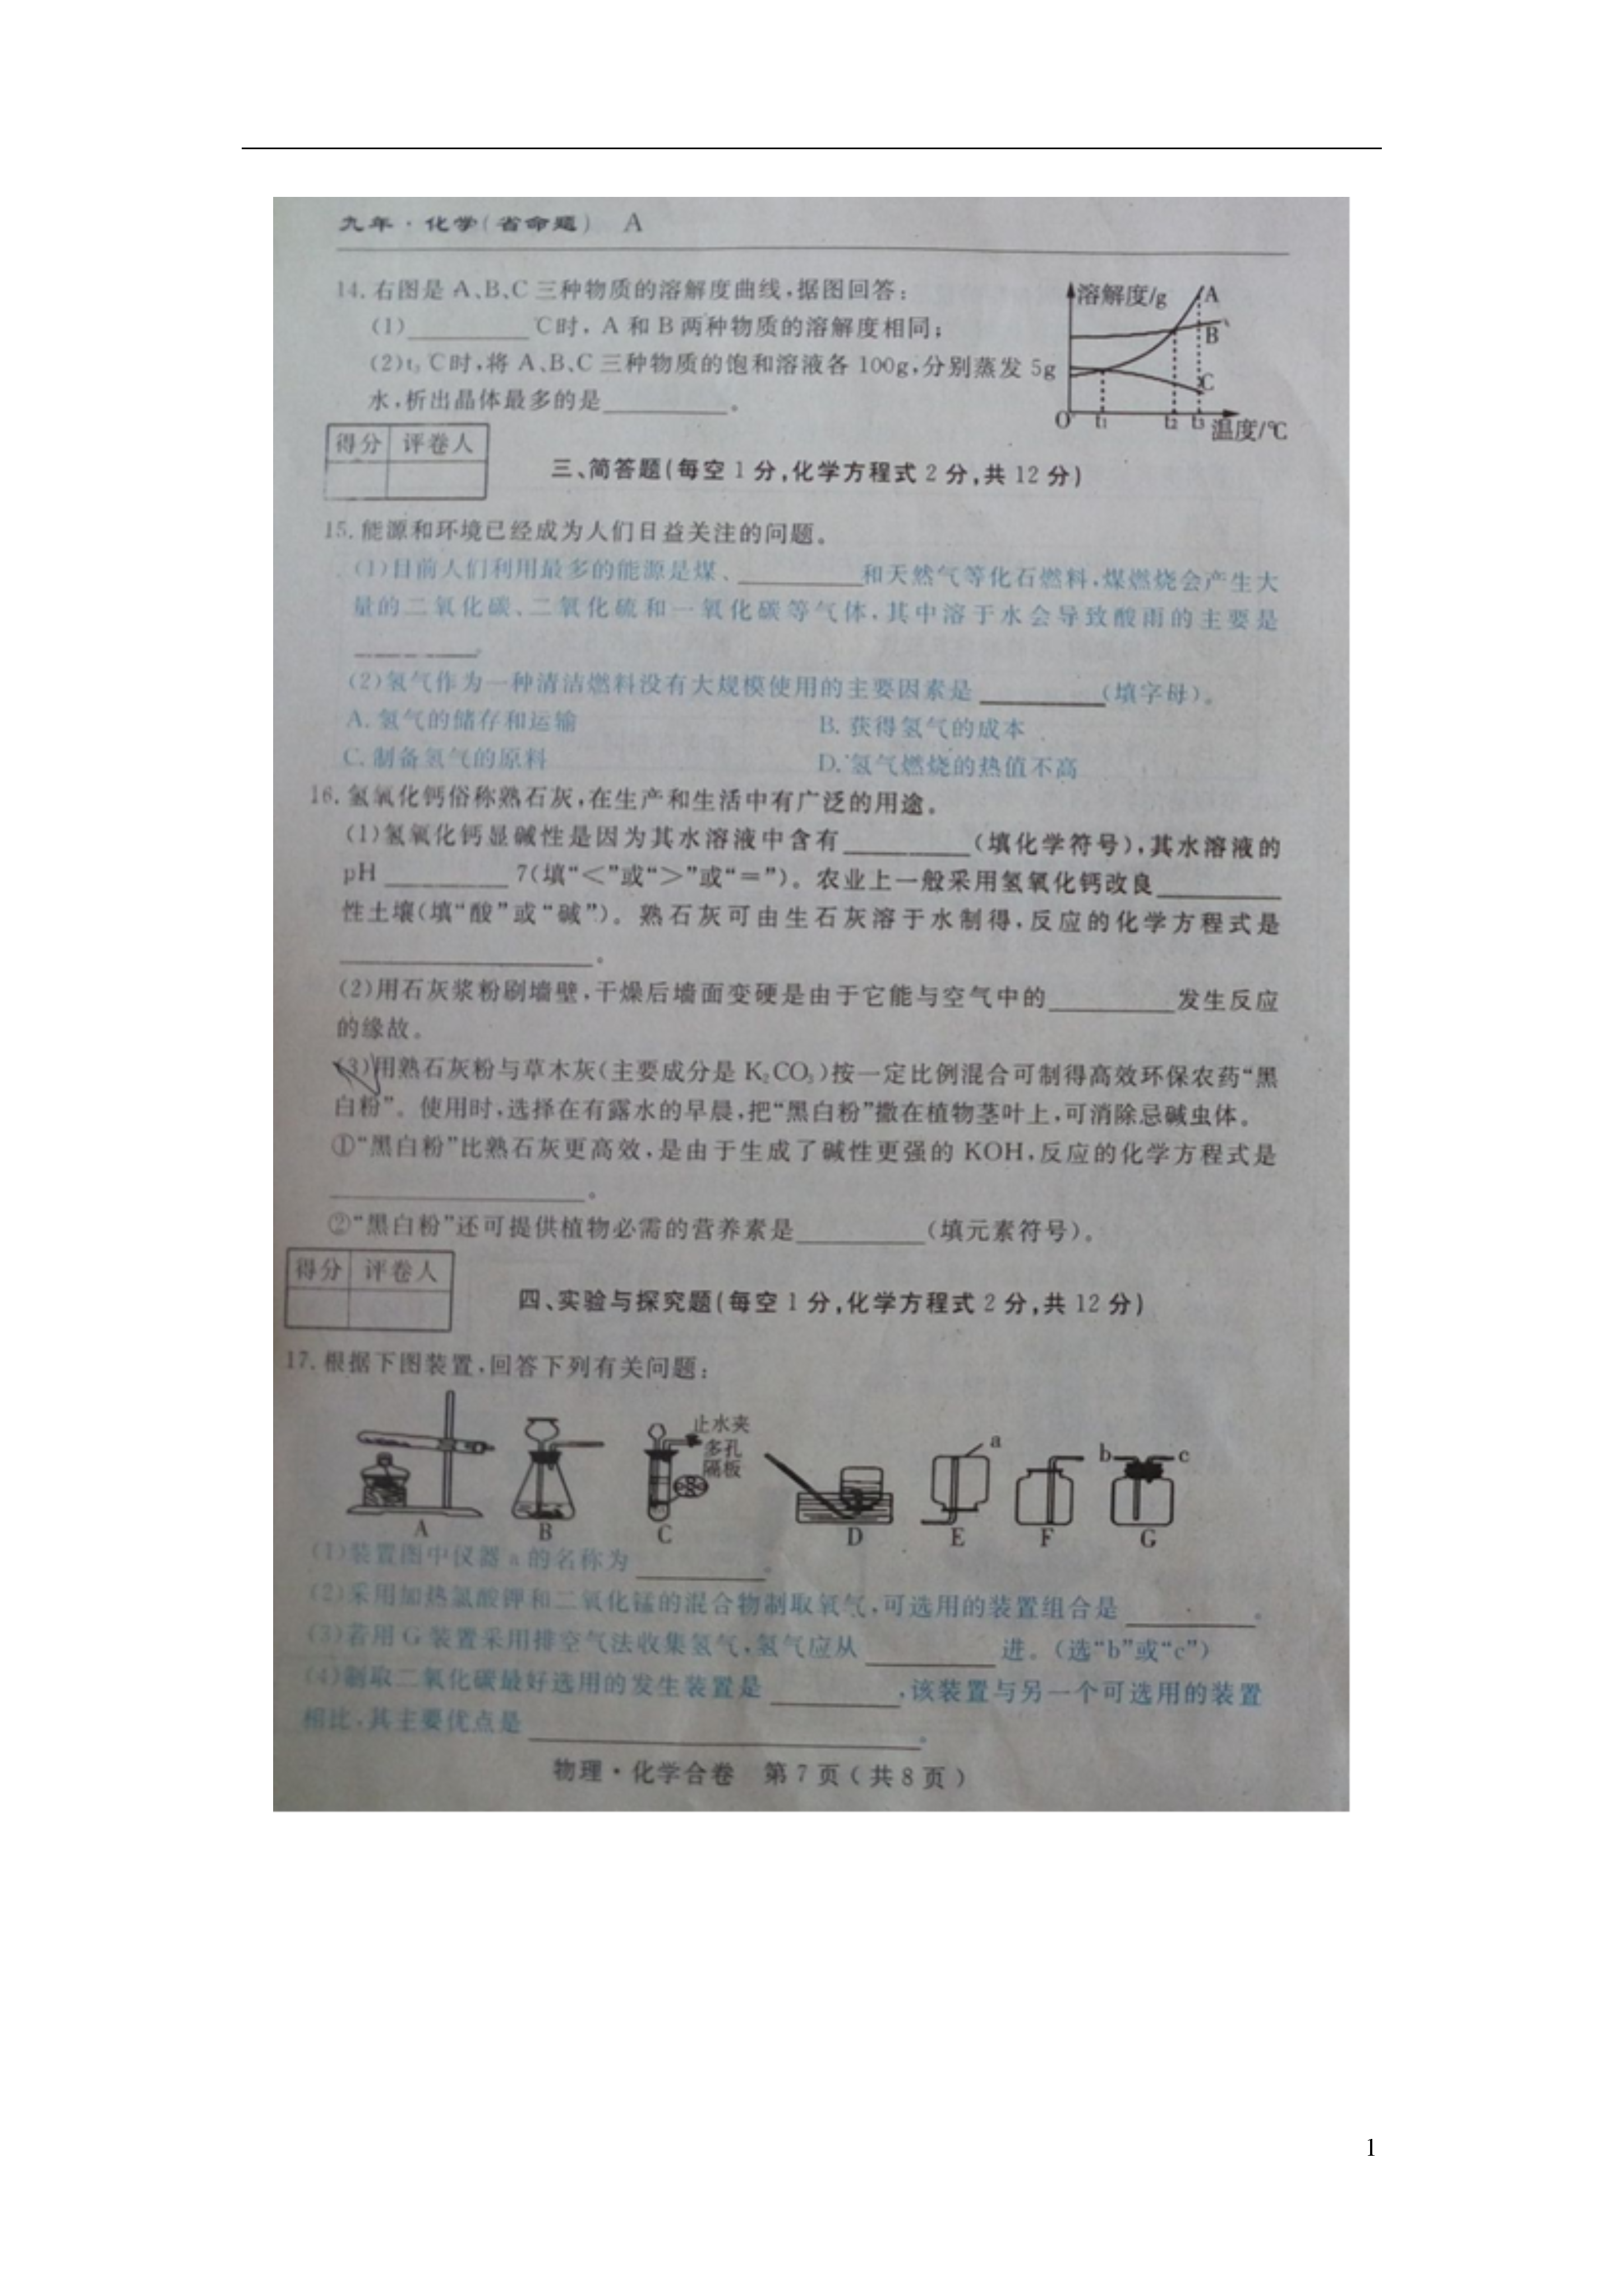 九年·化学(省命题) A
14.右图是 A、B、C 三种物质的溶解度曲线,据图回答:
(1)__________℃时, A 和 B 两种物质的溶解度相同;
(2)t₃℃时,将 A、B、C 三种物质的饱和溶液各 100g,分别蒸发 5g
水,析出晶体最多的是__________。
溶解度/g
A
B
C
O t₁ t₂ t₃ 温度/℃
得分 评卷人
三、简答题(每空 1 分,化学方程式 2 分,共 12 分)
15.能源和环境已经成为人们日益关注的问题。
(1)目前人们利用最多的能源是煤、__________和天然气等化石燃料,煤燃烧会产生大
量的二氧化碳、二氧化硫和一氧化碳等气体,其中溶于水会导致酸雨的主要是
__________。
(2)氢气作为一种清洁燃料没有大规模使用的主要因素是__________(填字母)。
A.氢气的储存和运输 B.获得氢气的成本
C.制备氢气的原料 D.氢气燃烧的热值不高
16.氢氧化钙俗称熟石灰,在生产和生活中有广泛的用途。
(1)氢氧化钙显碱性是因为其水溶液中含有__________(填化学符号),其水溶液的
pH__________7(填“<”或“>”或“=”)。农业上一般采用氢氧化钙改良__________
性土壤(填“酸”或“碱”)。熟石灰可由生石灰溶于水制得,反应的化学方程式是
____________________。
(2)用石灰浆粉刷墙壁,干燥后墙面变硬是由于它能与空气中的__________发生反应
的缘故。
(3)用熟石灰粉与草木灰(主要成分是 K₂CO₃)按一定比例混合可制得高效环保农药“黑
白粉”。使用时,选择在有露水的早晨,把“黑白粉”撒在植物茎叶上,可消除忌碱虫体。
①“黑白粉”比熟石灰更高效,是由于生成了碱性更强的 KOH,反应的化学方程式是
____________________。
②“黑白粉”还可提供植物必需的营养素是__________(填元素符号)。
得分 评卷人
四、实验与探究题(每空 1 分,化学方程式 2 分,共 12 分)
17.根据下图装置,回答下列有关问题:
止水夹
多孔
隔板
a b c
A B C D E F G
(1)装置图中仪器 a 的名称为__________。
(2)采用加热氯酸钾和二氧化锰的混合物制取氧气,可选用的装置组合是__________。
(3)若用 G 装置采用排空气法收集氢气,氢气应从__________进。(选“b”或“c”)
(4)制取二氧化碳最好选用的发生装置是__________,该装置与另一个可选用的装置
相比,其主要优点是______________________________。
物理·化学合卷 第 7 页(共 8 页)
1